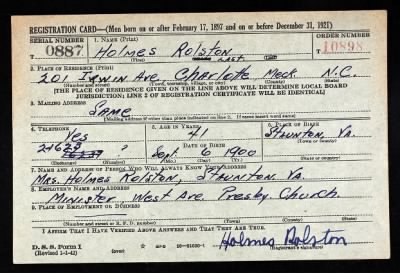 REGISTRATION CARD—(Men born on or after February 17, 1897 and on or before December 31, 1921)
SERIAL NUMBER 1. NAME (Print) ORDER NUMBER
0887 Holmes Rolston 10898
(First) (Middle) (Last)
2. PLACE OF RESIDENCE (Print)
201 Irwin Ave. Charlotte Meck. N.C.
(Number and street) (Town, township, village, or city) (County) (State)
[THE PLACE OF RESIDENCE GIVEN ON THE LINE ABOVE WILL DETERMINE LOCAL BOARD
JURISDICTION; LINE 2 OF REGISTRATION CERTIFICATE WILL BE IDENTICAL]
3. MAILING ADDRESS
Same
[Mailing address if other than place indicated on line 2. If same insert word same]
4. TELEPHONE 5. AGE IN YEARS 6. PLACE OF BIRTH
Yes 41 Staunton, Va.
(Town or county)
21629 DATE OF BIRTH
Sept. 6 1900
(Exchange) (Number) (Mo.) (Day) (Yr.) (State or country)
7. NAME AND ADDRESS OF PERSON WHO WILL ALWAYS KNOW YOUR ADDRESS
Mrs. Holmes Rolston, Staunton, Va.
8. EMPLOYER'S NAME AND ADDRESS
Minister, West Ave. Presby. Church
9. PLACE OF EMPLOYMENT OR BUSINESS
(Number and street or R. F. D. number) (Town) (County) (State)
I AFFIRM THAT I HAVE VERIFIED ABOVE ANSWERS AND THAT THEY ARE TRUE.
D. S. S. Form 1
(Revised 1-1-42) (over)
Holmes Rolston
(Registrant's signature)